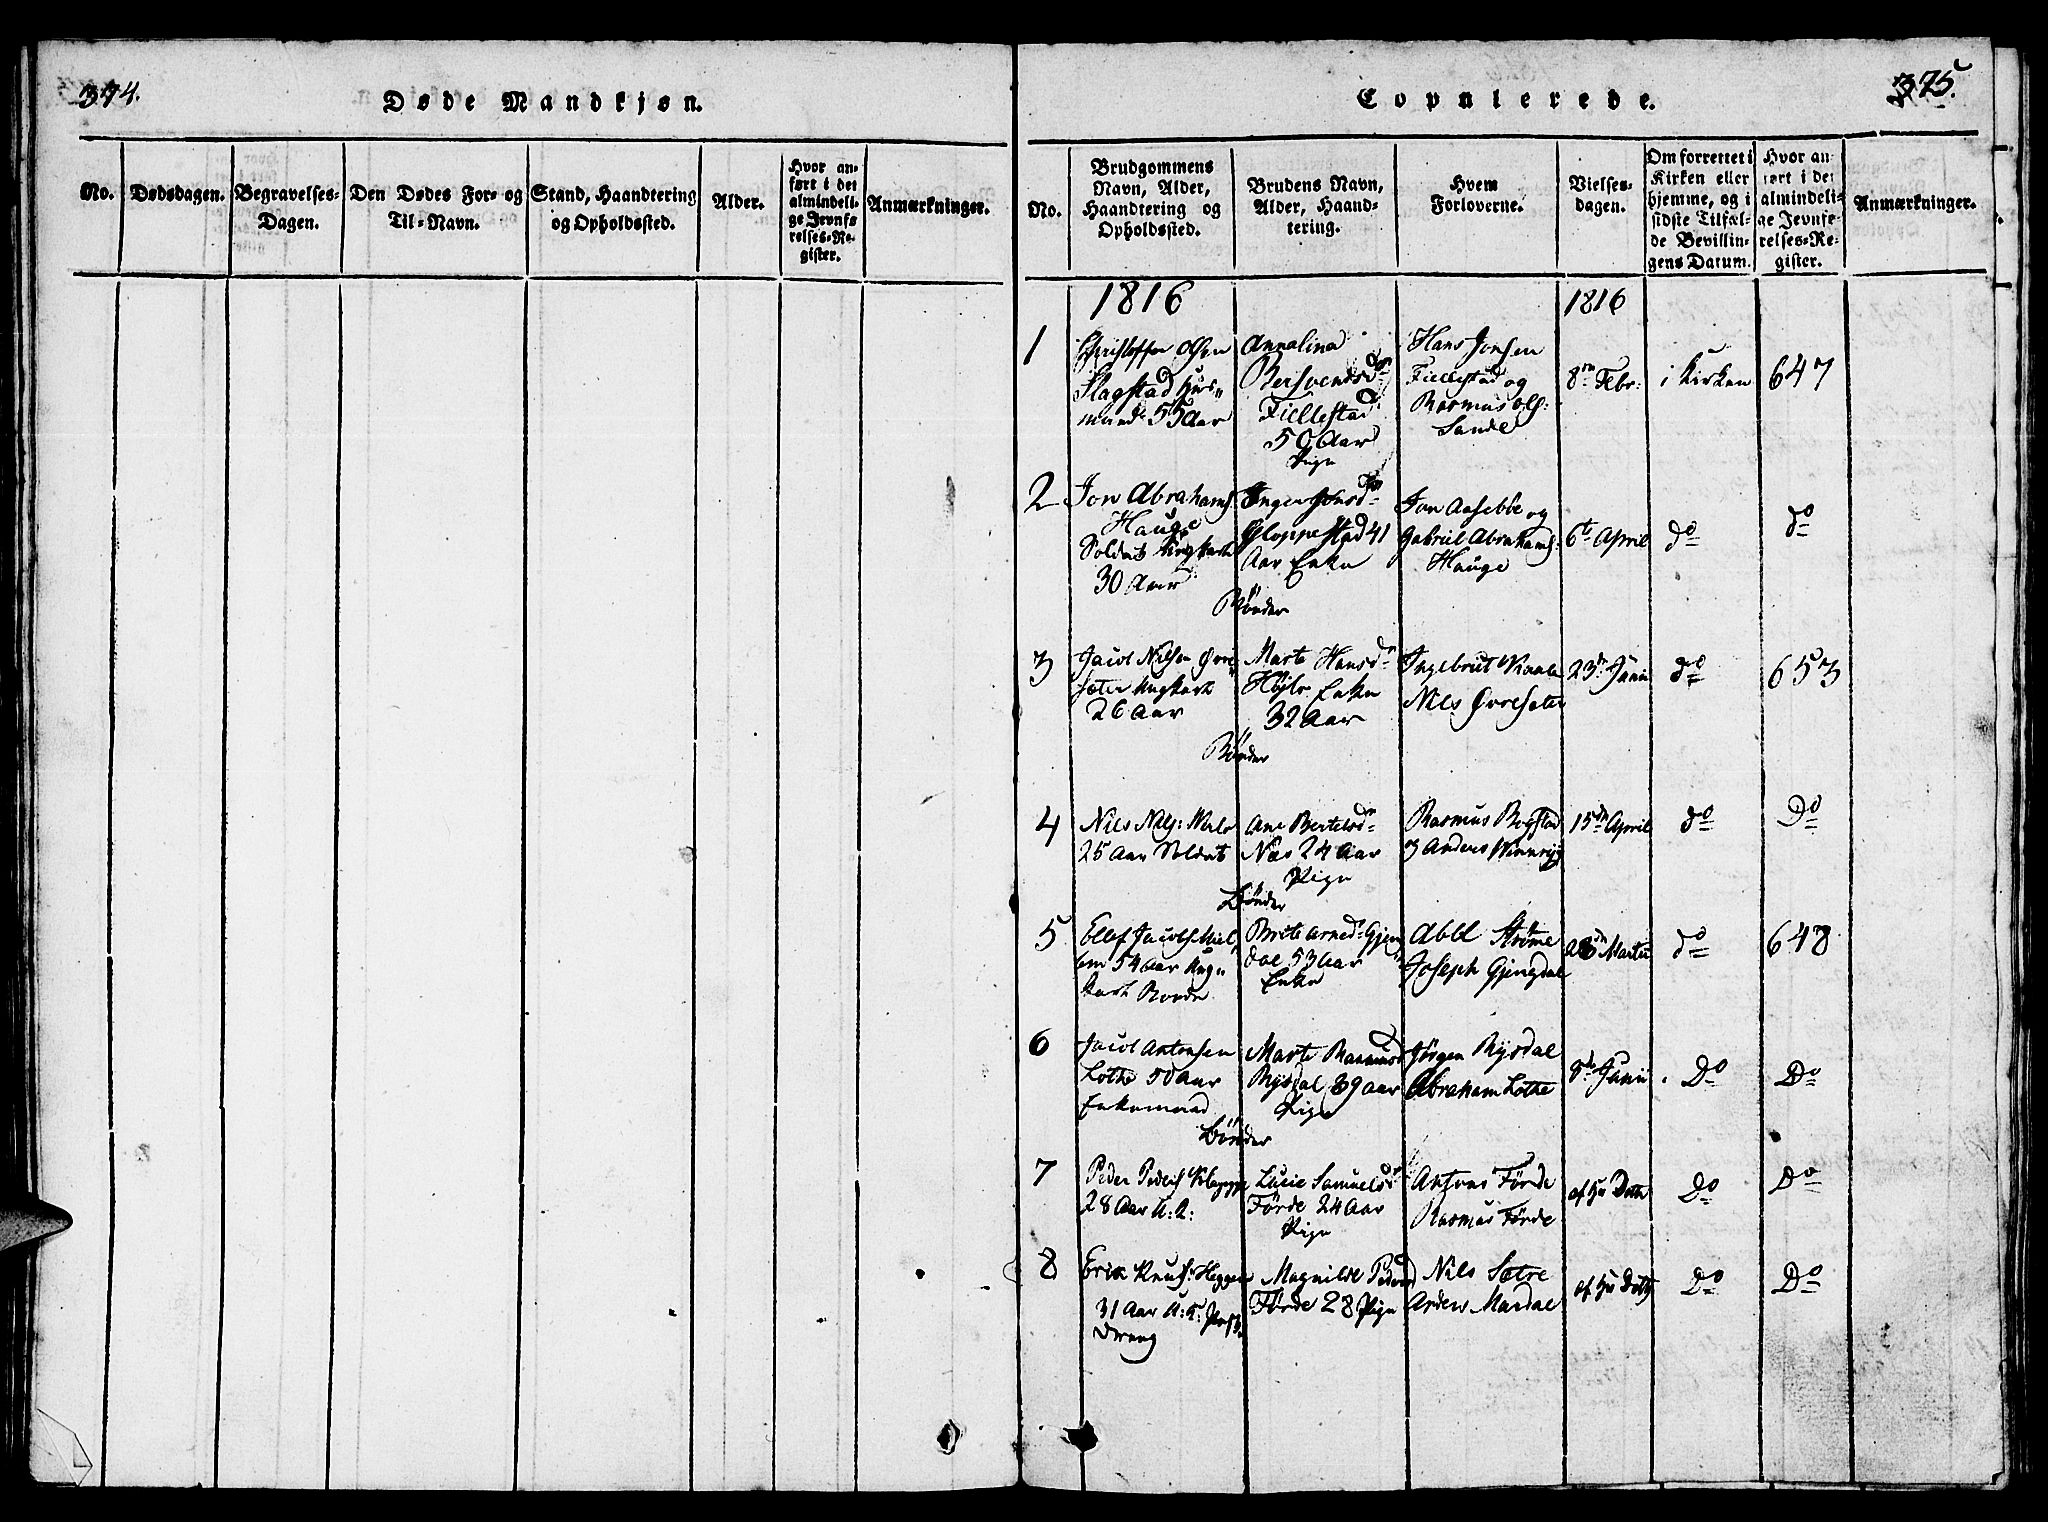 374.
Døde Mandkjøn.
No.
Dødsdagen.
Begravelses-
Dagen.
Den Dødes For- og
Til-Navn.
Stand, Haandtering
og Opholdssted.
Alder.
Hvor an-
ført i det
almindeli-
ge Jevnfø-
relses-Re-
gister.
Anmærkninger.
375.
Copulerede.
No.
Brudgommens
Navn, Alder,
Haandtering og
Opholdssted.
Brudens Navn,
Alder, Haand-
tering.
Hvem
Forloverne.
Vielses-
dagen.
Om forrettet i
Kirken eller
hjemme, og i
sidste Tilfæl-
de Bevillin-
gens Datum.
Hvor an-
ført i det
almindeli-
ge Jevnfø-
relses-Re-
gister.
Anmærkninger.
1816
1816
1
Christoffer Olsen
Flagstad Huus-
mand 55 Aar
Annalina
Bersvendsdr
Fiellestad
50 Aar
Pige
Hans Jonsen
Fiellestad og
Rasmus Ols:
Sande
8de Febr:
i Kirken
647
2
Jon Abrahams
Hauge
Soldat Ungkarl
30 Aar
Inger Jonsdr
Gloppestad 41
Aar Enke
Bönder
Jon Aasebøe og
Gabriel Abrahams:
Hauge
6te April
do
do
3
Jacob Nilsen Øvre
sæter Ungkarl
26 Aar
Marte Hansdr
Enke
32 Aar
Bönder
Ingebrigt
Nils Øvresæter
23de Junii
do
653
4
Nils Nils:
25 Aar Soldat
Ane Bertelsdr
Næs 24 Aar
Pige
Bönder
Rasmus
og Anders
15de April
do
Do
5
Jacobs
54 Aar Ung-
karl Bonde
Brite Arnedr Gjeng
dal 53 Aar
Enke
Abel Strøme
Joseph Gjengdal
Martii
do
648
6
Jacob Antonsen
Lothe 50 Aar
Enkemand
Marte Rasmusd
Rysdal 39 Aar
Pige
Bönder
Jørgen Rysdal
Abraham Lothe
8de Junii
Do
Do
7
Peder Peders
28 Aar U: K:
Lucie Samuelsdr
Førde 24 Aar
Pige
Førde
Rasmus Førde
af Hr Dothe
Do
Do
8
Erik Knuts: Heggen
31 Aar
Dreng
Magnilde
Førde 28 Pige
Nils Sætre
Anders Mardal
af Hr Doth
Do
Do